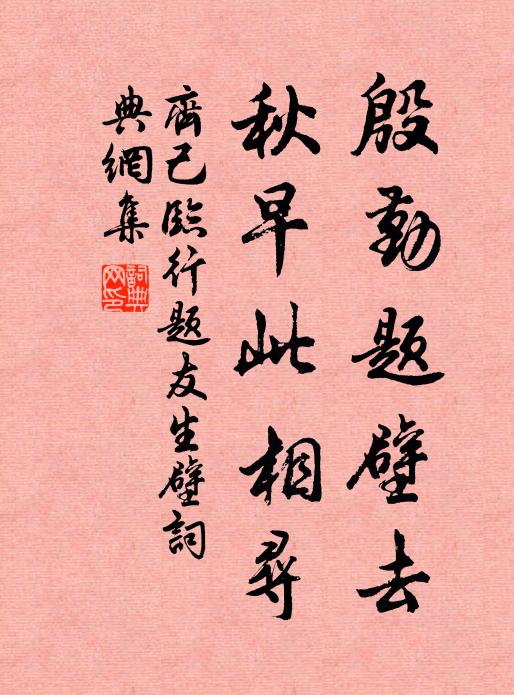 殷勤題壁去
秋早此相尋
齊己臨行題友生壁詞
典網集
詞典
网印